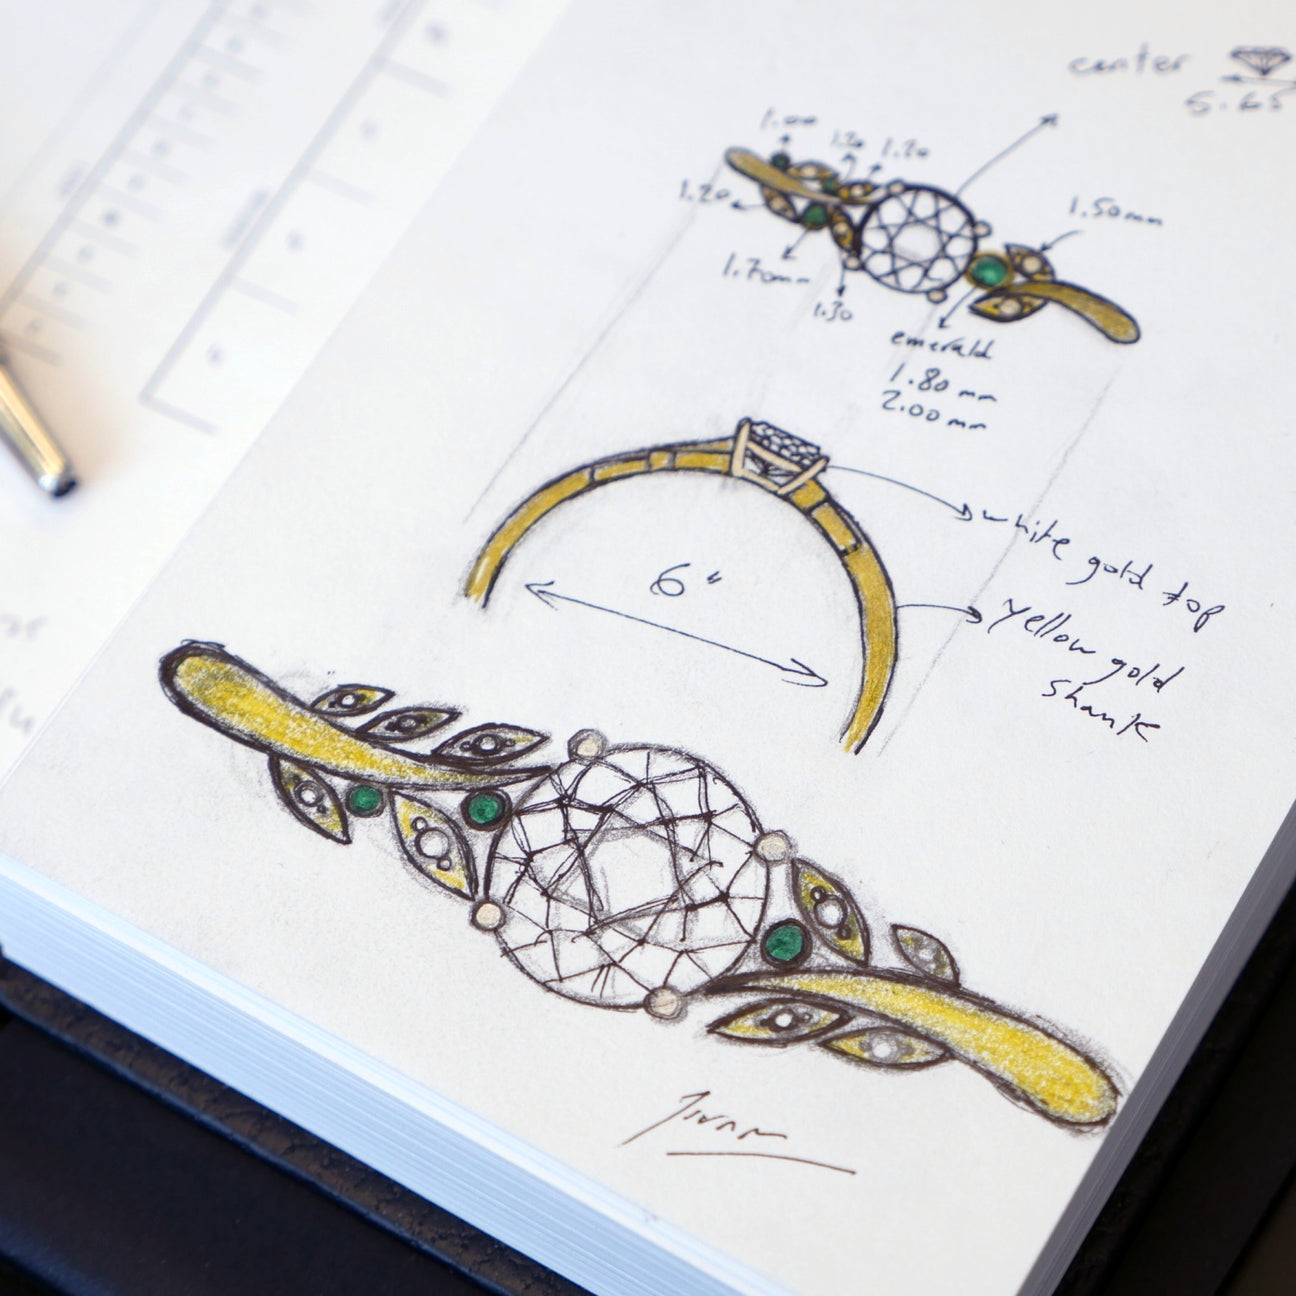 center
5.65
1.00
1.20
1.20
1.20
1.50mm
1.70mm
1.30
emerald
1.80 mm
2.00 mm
white gold top
6"
yellow gold
shank